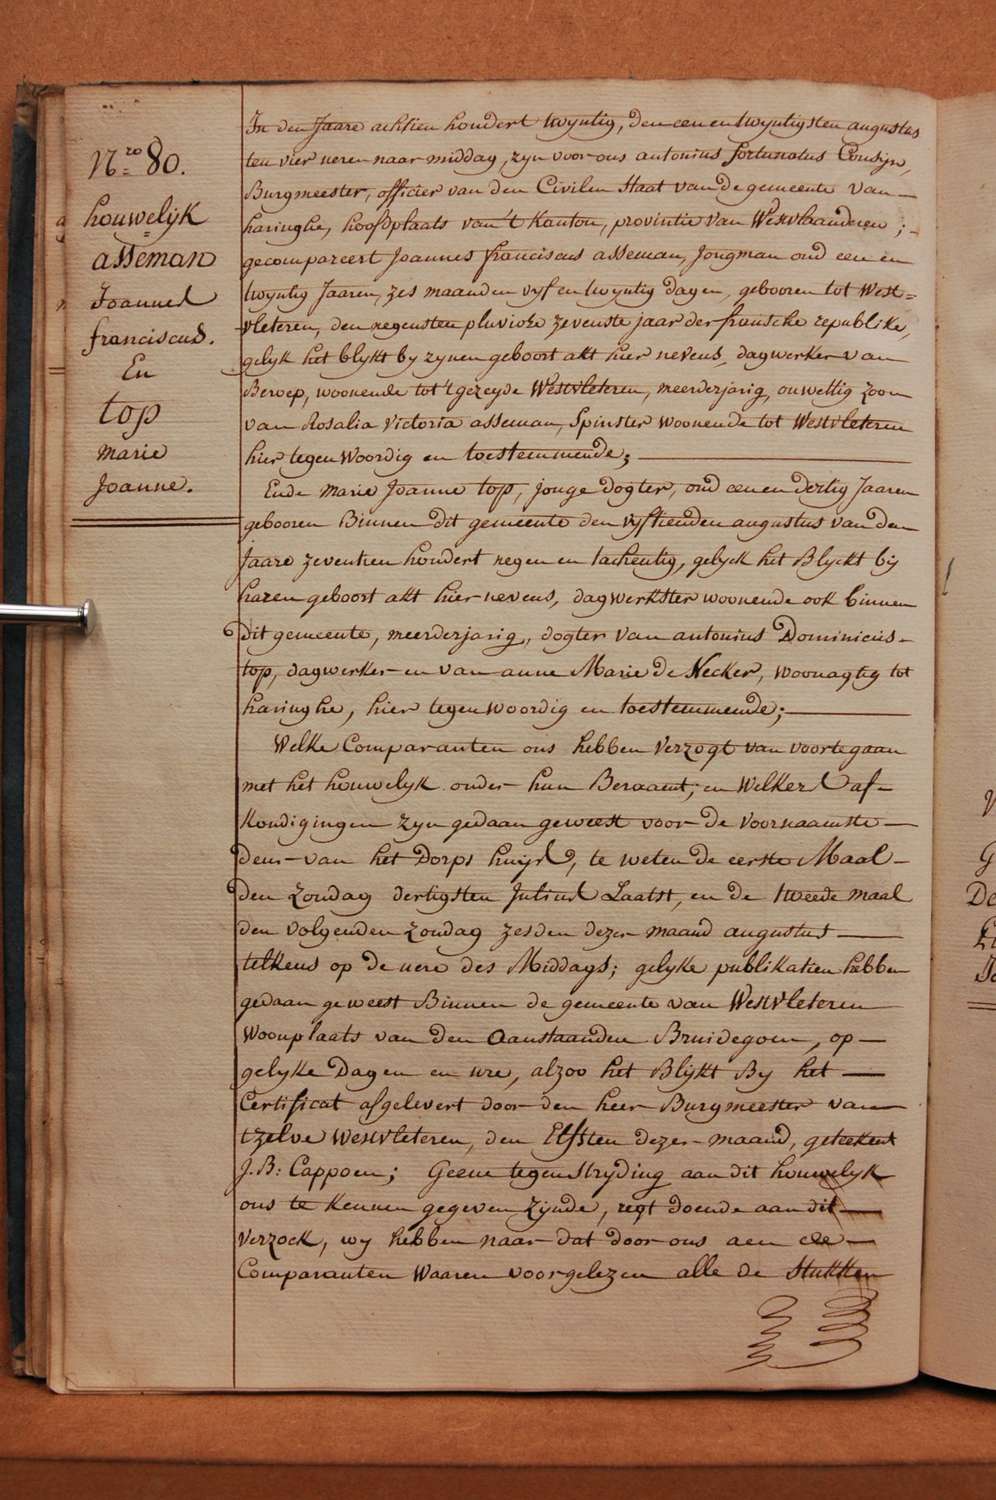 N.ro 80.
houwelijk
asseman
Joannes
franciscus.
En
top
marie
Joanne.
In den Jaare achtien hondert twyntig, den een en twyntigsten augustus
ten vier ueren naar middag, zyn voor ons antonius fortunatus Cousyn,
Burgmeester, officier van den Civilen Staat van de gemeente van
haringhe, hoofdplaats van 't Kanton, provintie van Westvlaanderen ;
gecompareert Joannes franciscus asseman, Jongman oud een en
twyntig Jaaren, zes maanden vyf en twyntig dagen, gebooren tot West=
vleteren, den negensten pluviose zevenste jaar der fransche republike,
gelyk het blykt by zynen geboort akt hier nevens, dagwerker van
Beroep, woonende tot 't gezeyde Westvleteren, meerderjarig, onwettig zoon
van Rosalia Victoria asseman, Spinster woonende tot Westvleteren
hier tegenwoordig en toestemmende;
Ende Marie Joanne top, jonge dogter, oud een en dertig Jaaren
gebooren Binnen dit gemeente den vyftienden augustus van den
Jaare zeventien hondert negen en tachentig, gelyck het Blyckt bij
haren geboort akt hier nevens, dagwerkster woonende ook binnen
dit gemeente, meerderjarig, dogter van antonius Dominicus
top, dagwerker en van anne Marie de Necker, woonagtig tot
haringhe, hier tegenwoordig en toestemmende;
Welke Comparanten ons hebben Verzogt van voortegaan
met het houwelyk onder hun Beraamt, en Welkers af-
Kondigingen zyn gedaan geweest voor de voornaamste
deur van het Dorps huijs, te weten de eerste Maal
den Zondag dertigsten Julius Laatst, en de tweede maal
den volgenden Zondag zesden dezer maand augustus
telkens op de uere des Middags; gelyke publikatien hebben
gedaan geweest Binnen de gemeente van Westvleteren
Woonplaats van den Aanstaanden Bruidegom, op
gelyke Dagen en ure, alzoo het Blijkt By het
Certificat afgelevert door den heer Burgmeester van
tzelve Westvleteren, den Elfsten dezer maand, geteekent
J.B: Cappoen; Geene tegenstryding aan dit houwelyk
ons te kennen gegeven zijnde, regt doende aan dit
Verzoek, wy hebben naar dat door ons aen de
Comparanten Waaren voorgelezen alle de Stukken